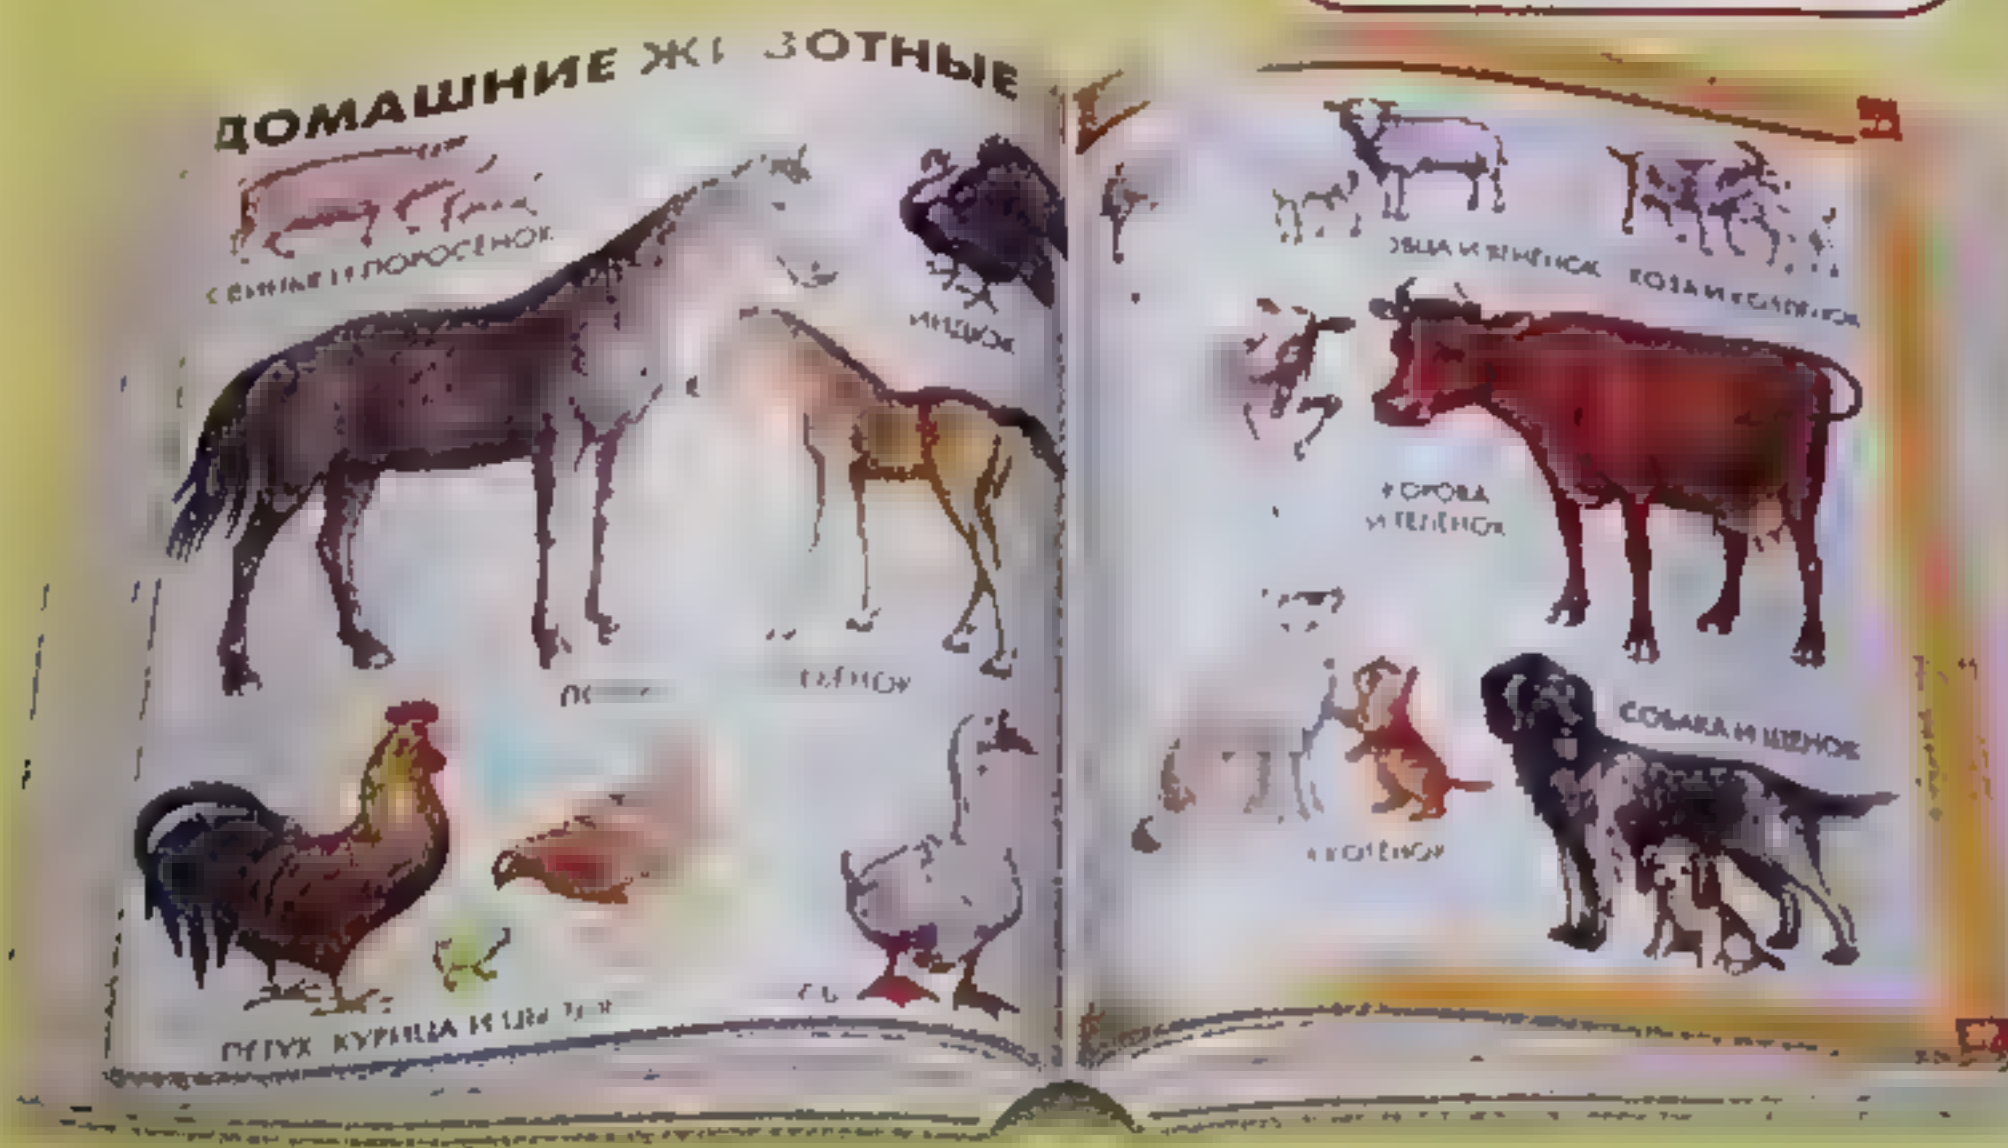 ДОМАШНИЕ ЖИВОТНЫЕ
СВИНЬЯ И ПОРОСЁНОК
ИНДЮК
ПЕТУХ КУРИЦА И
ОВЦА И ЯГНЁНОК
КОЗА И КОЗЛЁНОК
КОРОВА
И ТЕЛЁНОК
СОБАКА И ЩЕНОК
И КОТЁНОК